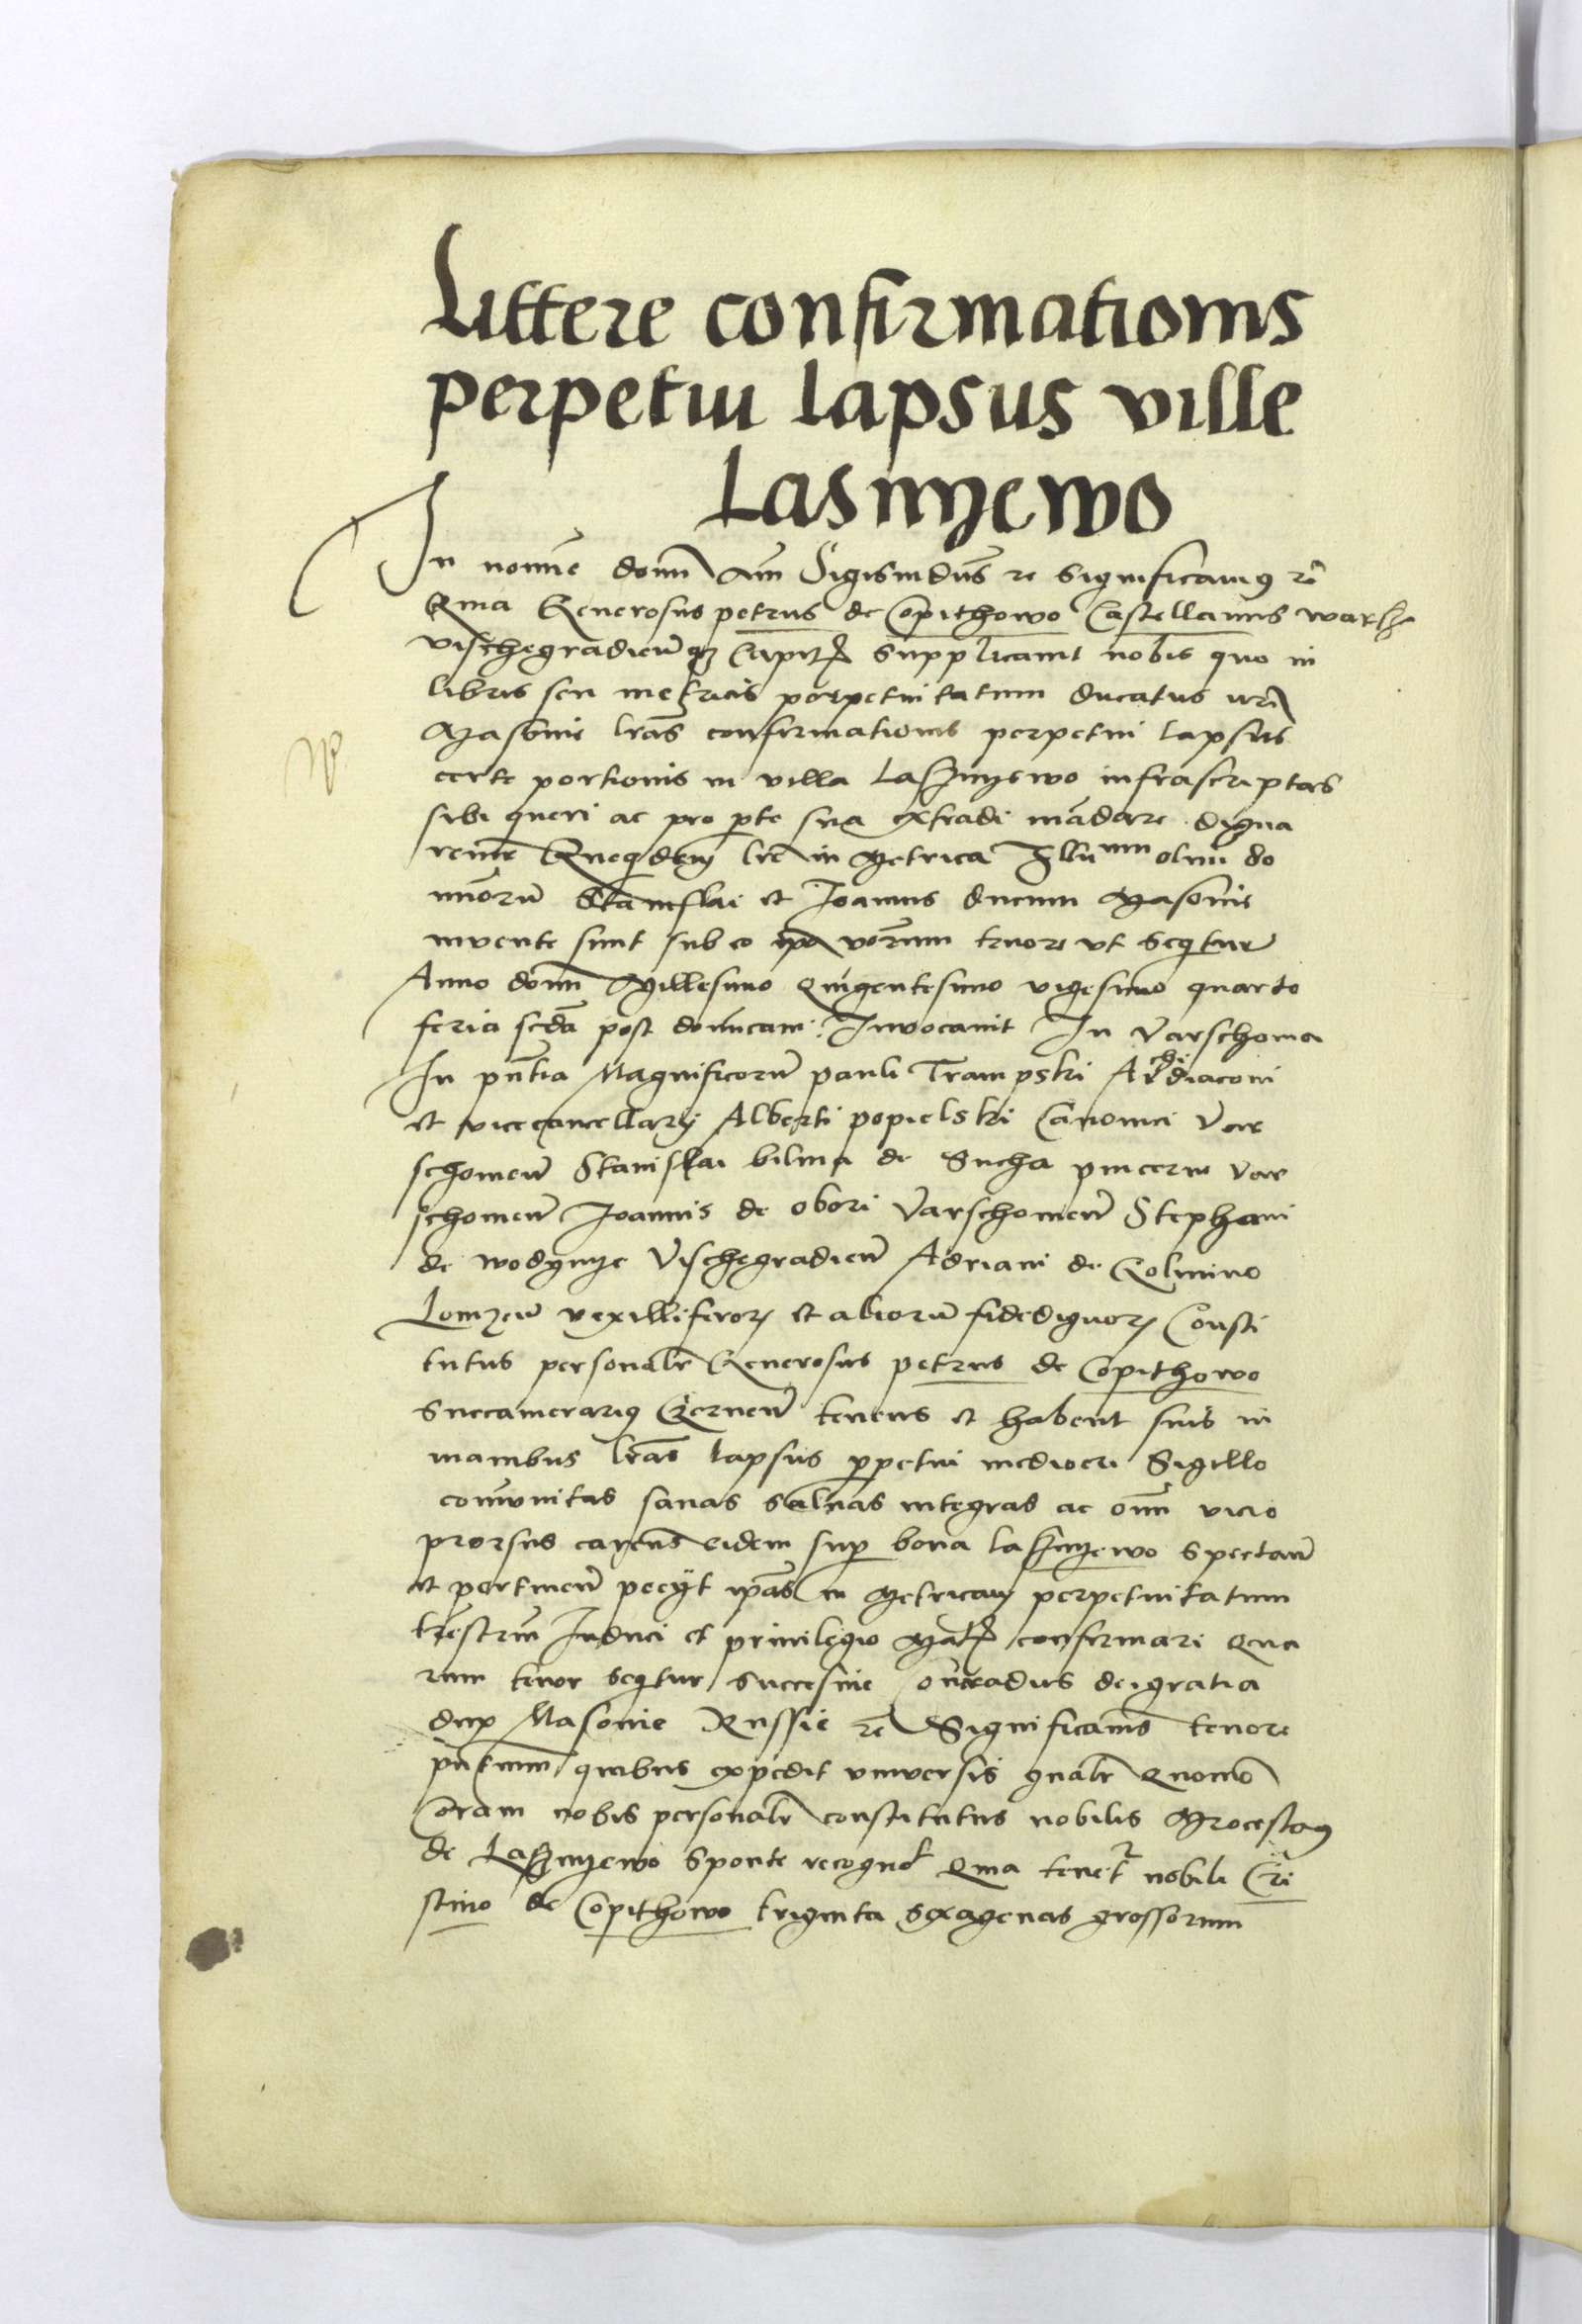 Littere confirmationis
perpetui lapsus ville
Lasnyewo
In nomine domini Am Sigismdus rc significamus rc
Qma Generosus petrus de Copithowo Castellanus warsch
vischegradienqz Capit supplicauit nobis quo in
libris seu metricis perpetuitatum ducatus nri
Masovie lras confirmationis perpetui lapsus
certe portionis in villa Lasznyewo infrascriptas
sibi queri ac pro pte sua extradi mandare digna
remur Quequidem lre in Metrica Illum olim do
minoru Stanislai et Joannis ducum Masovie
invente sunt sub eo verborum tenore vt sequitur
Anno domini Millesimo quingentesimo vigesimo quarto
feria scda post dominicam Invocavit In Varschovia
In pntia Magnificoru pauli Trampski Archidiaconi
et vicecancellarij Alberti popielski Canonici Var
schovien Stanislai bilina de Sucha pincerne Var
schovien Joannis de obori Varschovien Stephani
de wodynye Vischegradien Adriani de Golmino
Lomzen vexilliferorum et alioru fidedignorum Consti
tutus personalr Generosus petrus de Copithowo
Succamerarius Czernen tenens et habent suis in
manibus lras lapsus perpetui mediocri Sigillo
comunitas sanas saluas integras ac omi vicio
prorsus carens eidem sup bona Lasznyewo spectan
et pertinen pecijt ipas in Metricam perpetuitatum
trestrium Induci et privilegio confirmari Qua
rum tenor sequitur succesive Conradus dei gratia
dux Masovie Russie rc Significamus tenore
pntium quibus expedit vniversis gnalr Quomo
Coram nobis personalr constitutus nobilis Mroceslaus
de Lasznyewo sponte recogno Qma tenet nobili Cri
stino de Copithowo triginta sexagenas grossorum